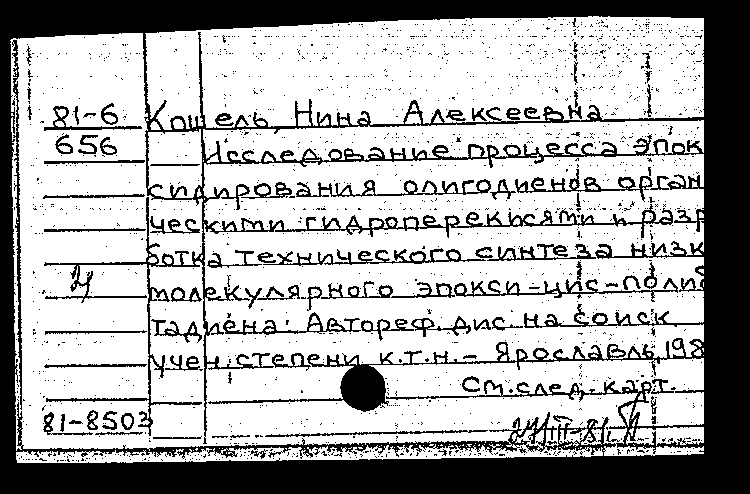 81-6 Кошель, Нина Алексеевна
656 Исследование процесса эпок
сидирования олигодиенов орган
ческими гидроперекисями и разр
ботка технического синтеза низк
молекулярного эпокси-цис-полиб
тадиена: Автореф. дис. на соиск
учен. степени к.т.н. - Ярославль, 198
См. след. карт.
81-8503